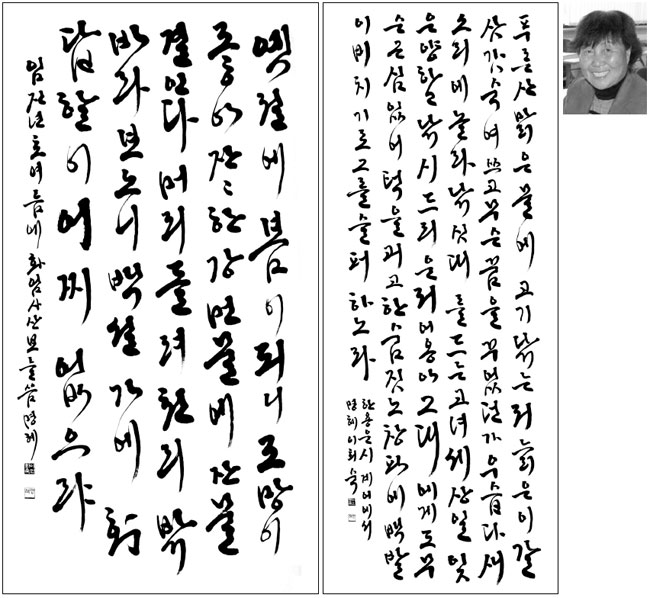 옛절에 봄이 되니 조망이
좋아 잔잔한 강 먼 물에 잔물
결 인다 머리 들려 천리 밖
바라보노니 백설가에 화
답할 이 어찌 없으랴
임진년 초여름에 화엄사 산보 씀 명혜
푸른 산 맑은 물에 고기 낚는 저 늙은이 갈
삿갓 숙여 쓰고 무슨 꿈을 꾸었던가 우습다 새
소리에 놀라 낚싯대를 드는고녀 세상일 잊
은 양 할 낚시 드리운 저 어옹아 그대에게도 무
슨 근심 있어 턱을 괴고 한숨짓노 창파에 백발
이 비치기로 그를 슬퍼하노라
한용운시 계어에서
명혜 이희숙